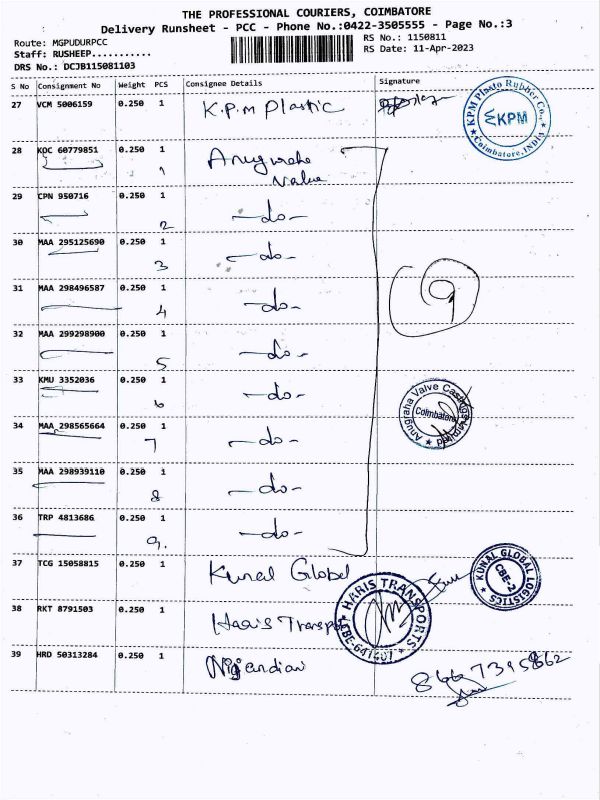 THE PROFESSIONAL COURIERS, COIMBATORE
Delivery Runsheet - PCC - Phone No.:0422-3505555 - Page No.:3
Route: MGPUDURPCC
RS No.: 1150811
Staff: RUSHEEP...........
RS Date: 11-Apr-2023
DRS No.: DCJB115081103
S No Consignment No Weight PCS Consignee Details Signature
27 VCM 5006159 0.250 1 K.P.M Plastic
KPM Plasto Rubber Co.,
KPM
Coimbatore, INDIA
28 KOC 60779851 0.250 1 Anugraha
1 Valve
29 CPN 950716 0.250 1 -do-
2
30 MAA 295125690 0.250 1 -do-
3
31 MAA 298496587 0.250 1 -do- 9
4
32 MAA 299298900 0.250 1 -do-
5
33 KMU 3352036 0.250 1 -do-
6
Anugraha Valve Castings Limited
Coimbatore
34 MAA 298565664 0.250 1 -do-
7
35 MAA 298939110 0.250 1 -do-
8
36 TRP 4813686 0.250 1 -do-
9.
37 TCG 15058815 0.250 1 Kunal Global
KUNAL GLOBAL LOGISTICS
CBE-2
38 RKT 8791503 0.250 1 Haris Transport
HARIS TRANSPORTS
39 HRD 50313284 0.250 1